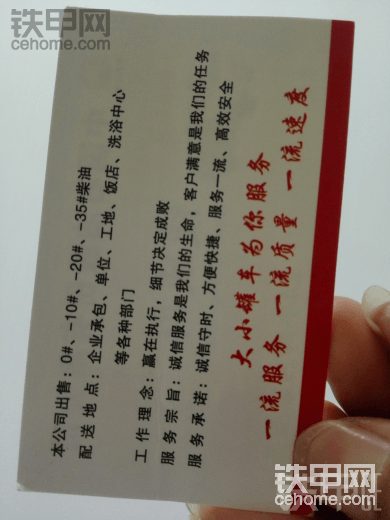 铁甲网
cehome.com
本公司出售：0#、-10#、-20#、-35#柴油
配送地点：企业承包、单位、工地、饭店、洗浴中心
等各种部门
工作理念：赢在执行，细节决定成败
服务宗旨：诚信服务是我们的生命，客户满意是我们的任务
服务承诺：诚信守时、方便快捷、服务一流、高效安全
大小罐车为你服务
一流服务 一流质量 一流速度
铁甲网
cehome.com